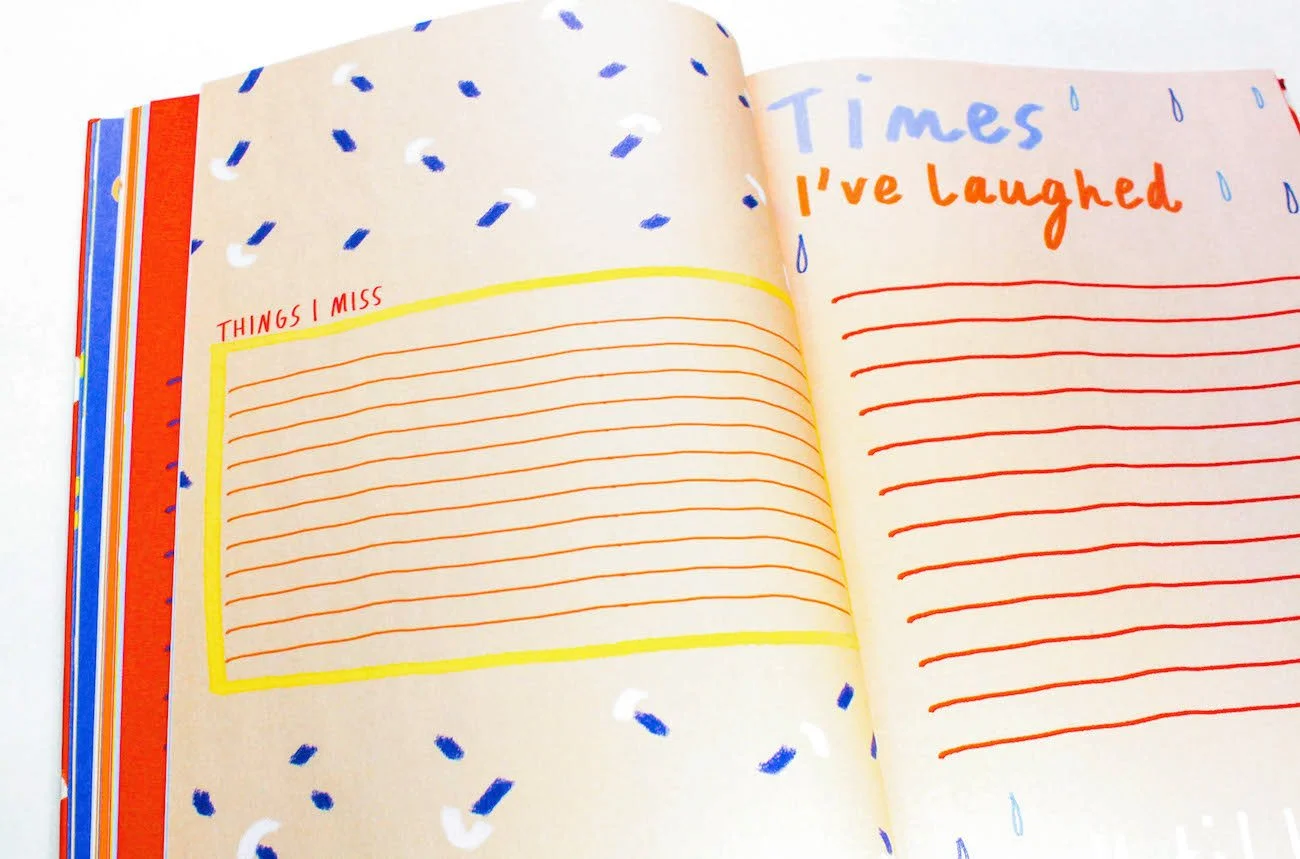 THINGS I MISS
Times
I've laughed